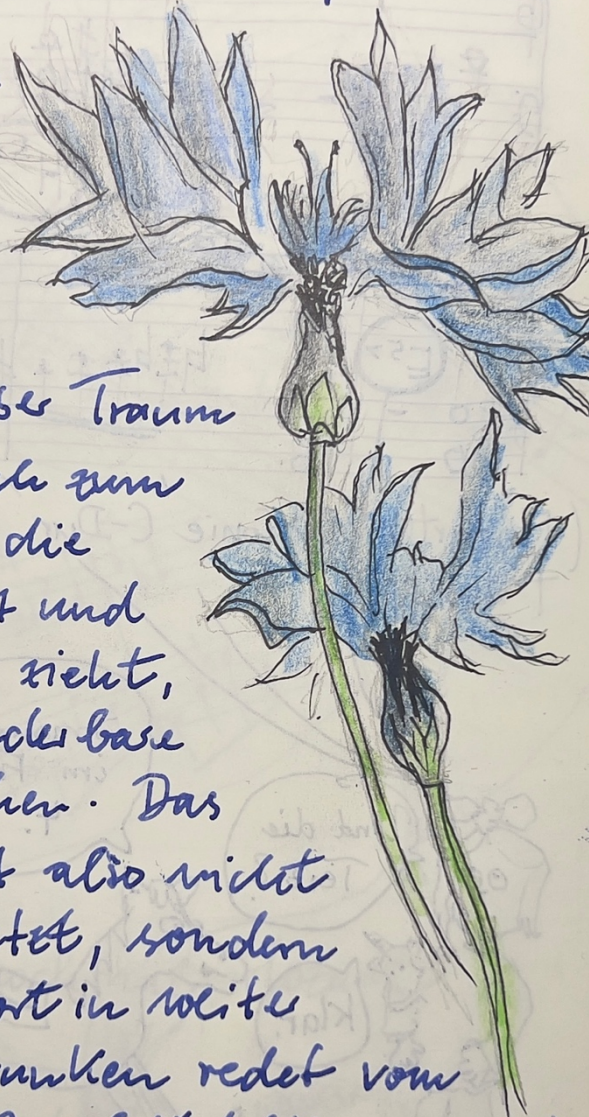 ser Traum
ch zum
die
t und
zieht,
derbase
hen. Das
t also nicht
tzt, sondern
ort in weiter
unken redet vom